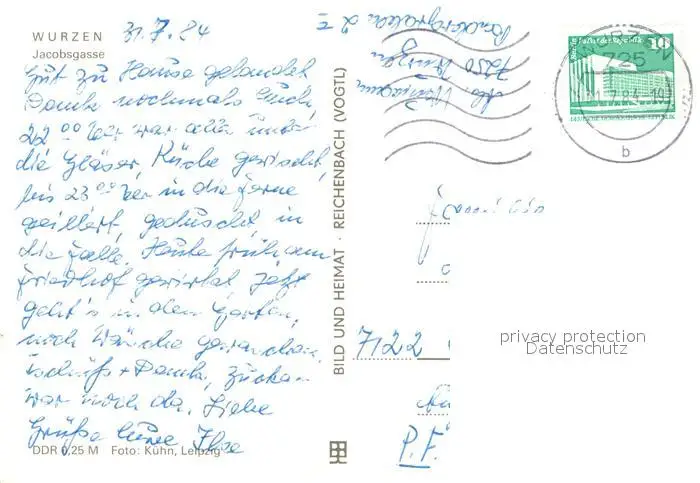 WURZEN
Jacobsgasse
31.7.84
Gut zu Hause gelandet
Danke nochmals Euch,
22 00 Uhr war alles unter
die Gläser, Küche gewischt,
bis 23 00 Uhr in die Ferne
geillert, geduscht, in
die Falle. Heute früh am
Friedhof gewirkt jetzt
geht's in den Garten,
noch Wäsche gewaschen,
tschüß + Dank,
war noch da. Liebe
Grüße Eure Ilse
DDR 0,25 M Foto: Kühn, Leipzig
BILD UND HEIMAT · REICHENBACH (VOGTL)
7250 Wurzen
10
725
84-19
b
7122
P.F.
privacy protection
Datenschutz